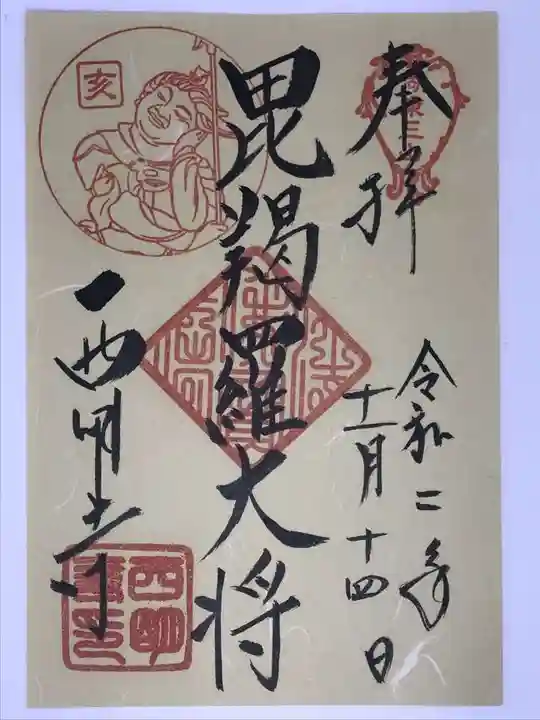 奉拝
令和二年
十一月十四日
毘羯羅大将
亥
西明寺